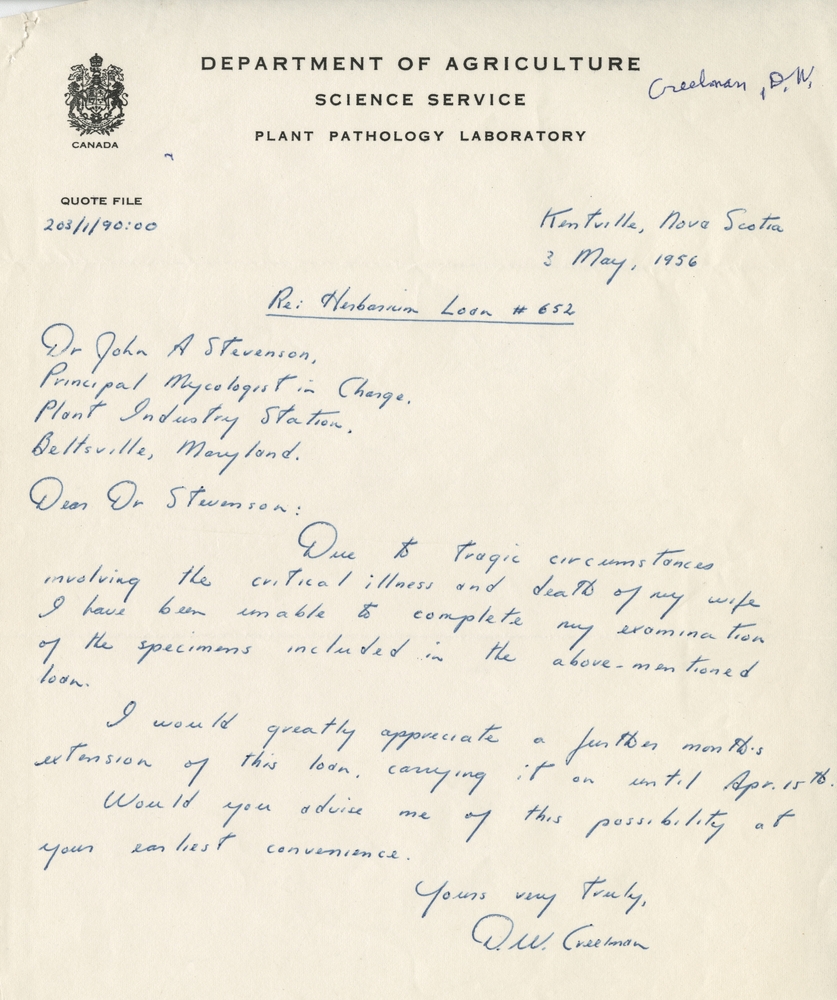 DEPARTMENT OF AGRICULTURE
SCIENCE SERVICE
PLANT PATHOLOGY LABORATORY
Creelman, D.W.
CANADA
QUOTE FILE
203/1/90:00
Kentville, Nova Scotia
3 May, 1956
Re: Herbarium Loan # 652
Dr John A Stevenson,
Principal Mycologist in Charge,
Plant Industry Station,
Beltsville, Maryland.
Dear Dr Stevenson:
Due to tragic circumstances
involving the critical illness and death of my wife
I have been unable to complete my examination
of the specimens included in the above-mentioned
loan.
I would greatly appreciate a further month's
extension of this loan, carrying it on until Apr. 15th.
Would you advise me of this possibility at
your earliest convenience.
Yours very truly,
D.W. Creelman